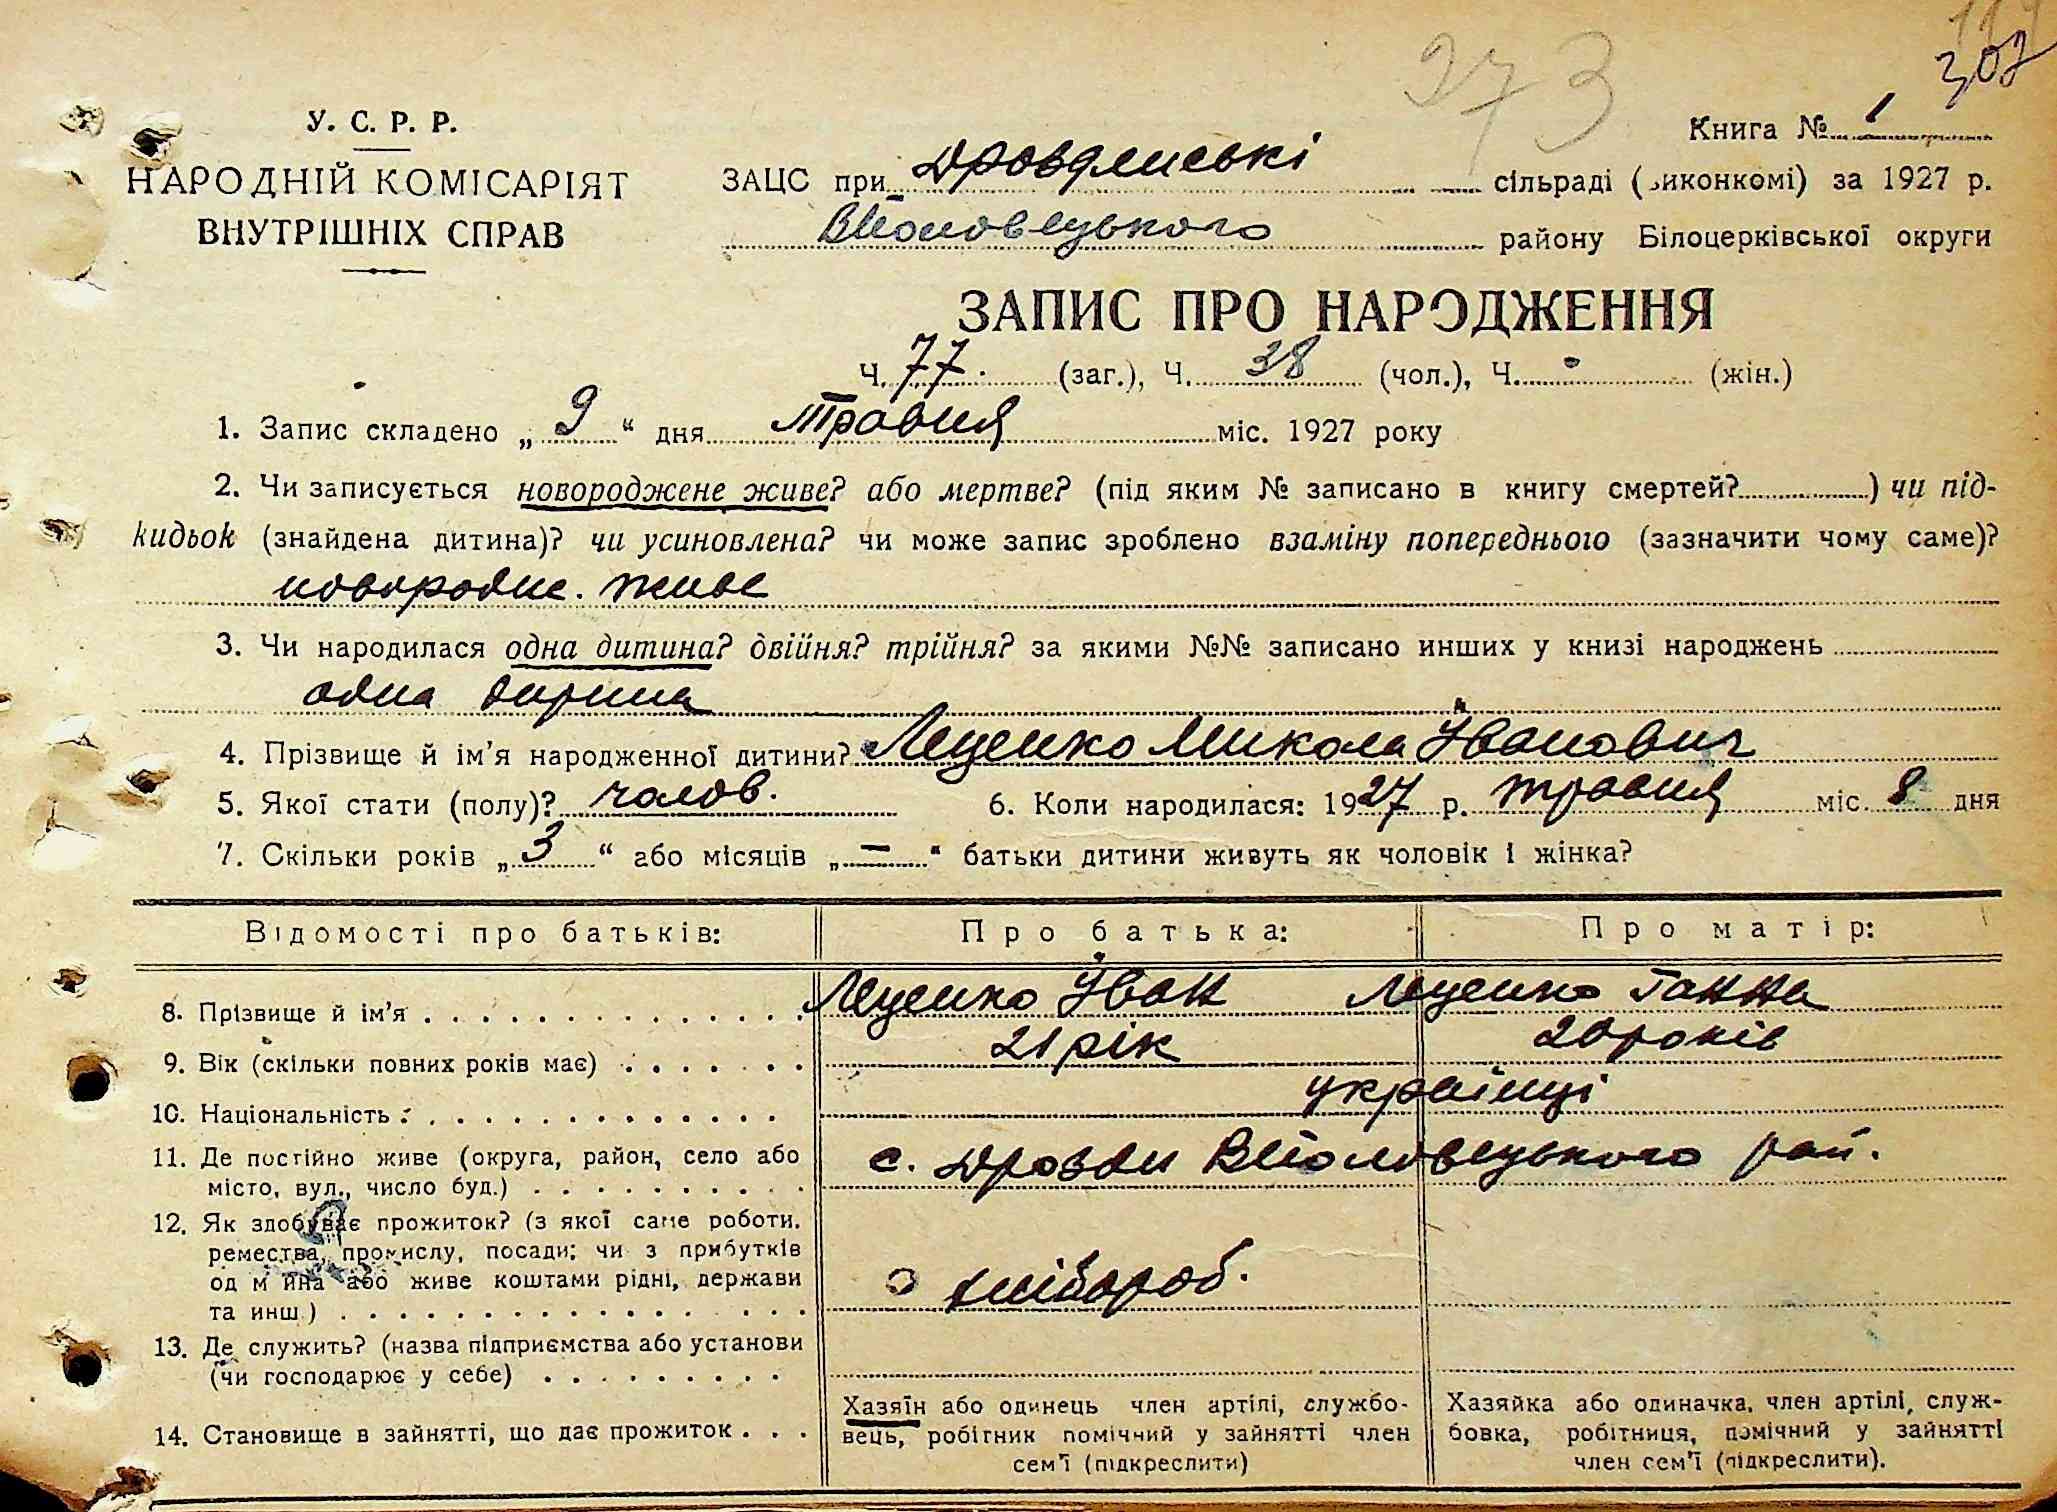 117
302
273
У. С. Р. Р.
НАРОДНІЙ КОМІСАРІЯТ
ВНУТРІШНІХ СПРАВ
Книга № 1
ЗАЦС при сільраді (виконкомі) за 1927 р.
району Білоцерківської округи
ЗАПИС ПРО НАРОДЖЕННЯ
Ч. 77. (заг.), Ч. 38 (чол.), Ч. - (жін.)
1. Запис складено „ 9 “ дня Травня міс. 1927 року
2. Чи записується новороджене живе? або мертве? (під яким № записано в книгу смертей? ) чи під-
кидьок (знайдена дитина)? чи усиновлена? чи може запис зроблено взаміну попереднього (зазначити чому саме)?
живе
3. Чи народилася одна дитина? двійня? трійня? за якими №№ записано инших у книзі народжень
одна дитина
4. Прізвище й ім’я народженної дитини? Леценко Микола Іванович
5. Якої стати (полу)? чолов. 6. Коли народилася: 1927 р. травня міс. 8 дня
7. Скільки років „ 3 “ або місяців „ — “ батьки дитини живуть як чоловік і жінка?
Відомості про батьків: Про батька: Про матір:
8. Прізвище й ім’я Леценко Іван Леценко Ганна
9. Вік (скільки повних років має) 21 рік 20 років
10. Національність українці
11. Де постійно живе (округа, район, село або
місто, вул., число буд.) с. Дрозди рай.
12. Як здобуває прожиток? (з якої саме роботи,
ремества, промислу, посади; чи з прибутків
од майна або живе коштами рідні, держави
та инш.) хлібороб.
13. Де служить? (назва підприємства або установи
(чи господарює у себе)
14. Становище в зайнятті, що дає прожиток
Хазяїн або одинець член артілі, службо-
вець, робітник помічний у зайнятті член
сем’ї (підкреслити)
Хазяйка або одиначка, член артілі, служ-
бовка, робітниця, помічний у зайнятті
член сем’ї (підкреслити).